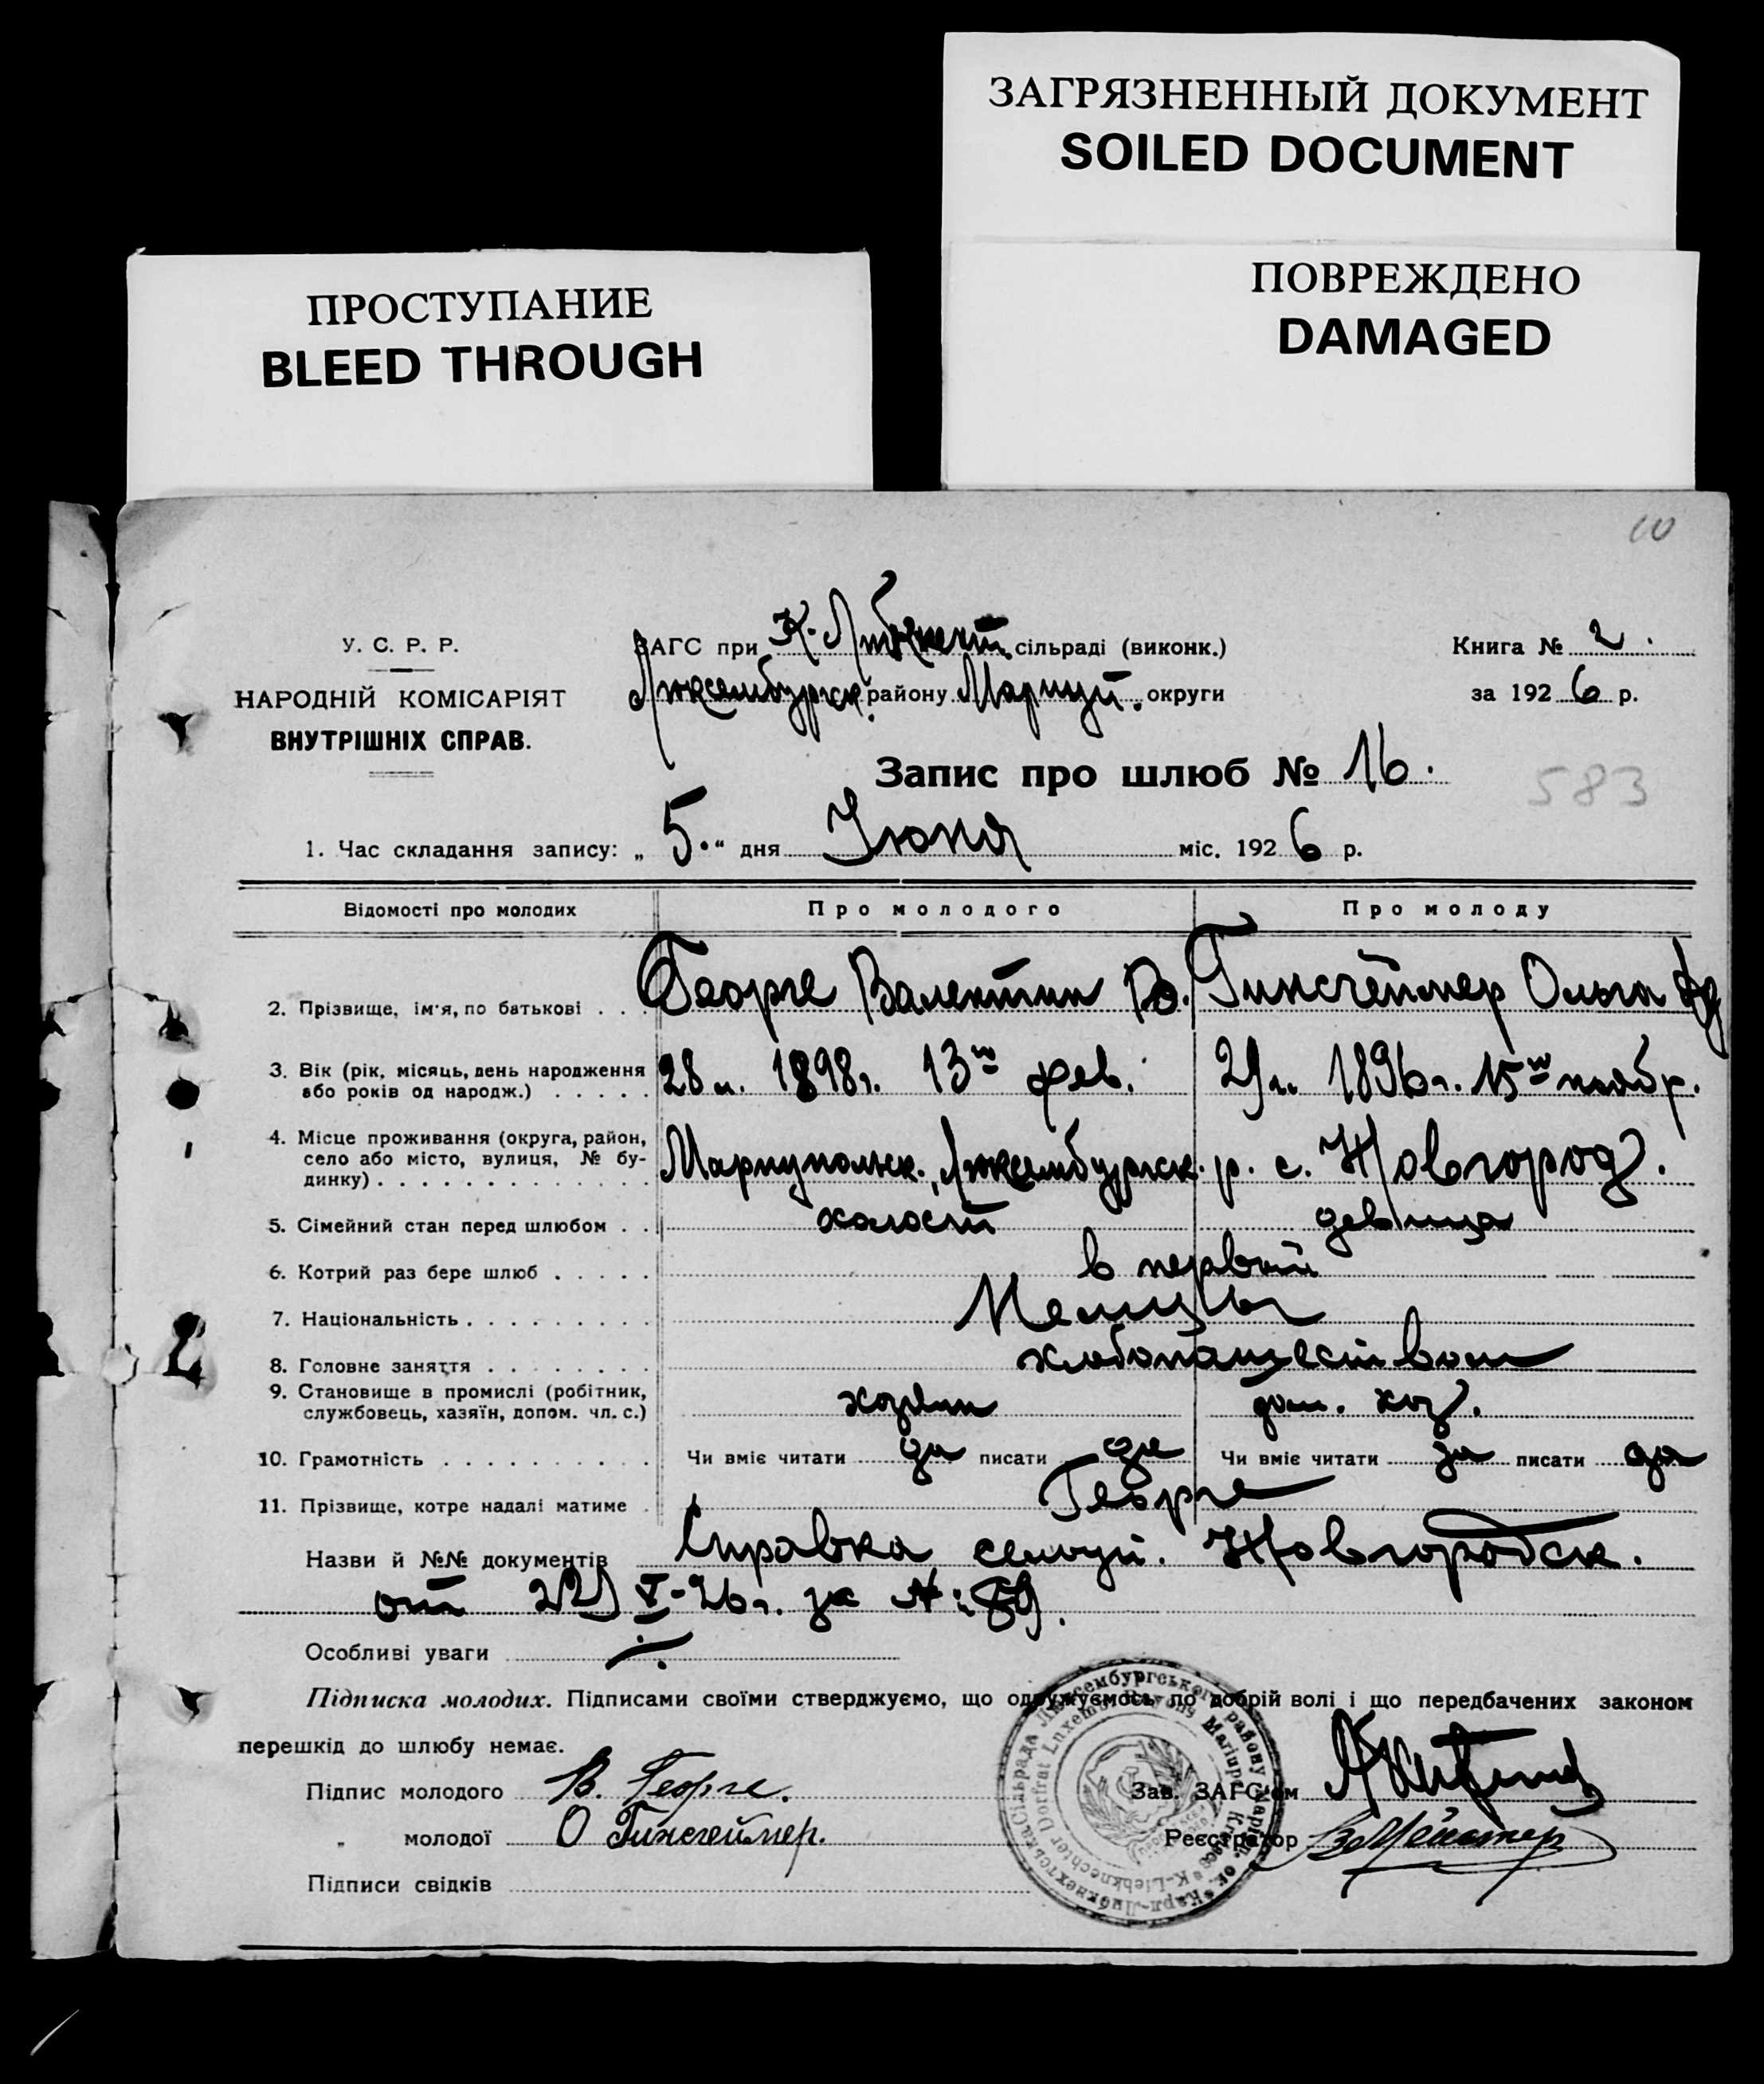 ЗАГРЯЗНЕННЫЙ ДОКУМЕНТ
SOILED DOCUMENT
ПРОСТУПАНИЕ
BLEED THROUGH
ПОВРЕЖДЕНО
DAMAGED
10
У. С. Р. Р.
НАРОДНІЙ КОМІСАРІЯТ
ВНУТРІШНІХ СПРАВ.
ЗАГС при К. Либкнехт. сільраді (виконк.)
Люксембургск. району Мариуп. округи
Книга № 2.
за 1926 р.
Запис про шлюб № 16.
583
1. Час складання запису: „ 5. “ дня Июня міс. 1926 р.
Відомості про молодих Про молодого Про молоду
2. Прізвище, ім'я, по батькові . . . Георге Валентин Гинсгеймер Ольга
3. Вік (рік, місяць, день народження або років од народж.) . . . . . 28 л. 1898 г. 13го фев. 29 л. 1896 г. 15го ноябр.
4. Місце проживання (округа, район, село або місто, вулиця, № будинку) . . . . . . . . . . . . . Мариупольск., Люксембургск. р. с. Новгород.
5. Сімейний стан перед шлюбом . . холост девица
6. Котрий раз бере шлюб . . . . . в первый
7. Національність . . . . . . . . . Немцы
8. Головне заняття . . . . . . . . хлебопашеством
9. Становище в промислі (робітник, службовець, хазяїн, допом. чл. с.) хозяин дом. хоз.
10. Грамотність . . . . . . . . . . Чи вміє читати да писати да Чи вміє читати да писати да
11. Прізвище, котре надалі матиме . Георге
Назви й №№ документів Справка Новгородск.
от V-26 г. за №: 89.
Особливі уваги
Підписка молодих. Підписами своїми стверджуємо, що одружуємось по добрій волі і що передбачених законом
перешкід до шлюбу немає.
Підпис молодого В. Георге.
„ молодої О Гинсгеймер.
Підписи свідків
Зав. ЗАГС'ом
Реєстратор В Мейстер
Карл-Лібкнехтська Сільрада Люксембургського району Маріюп. ок.
K-Liebknechter Dorfrat Luxemb. Rayony Mariupl. Kreises